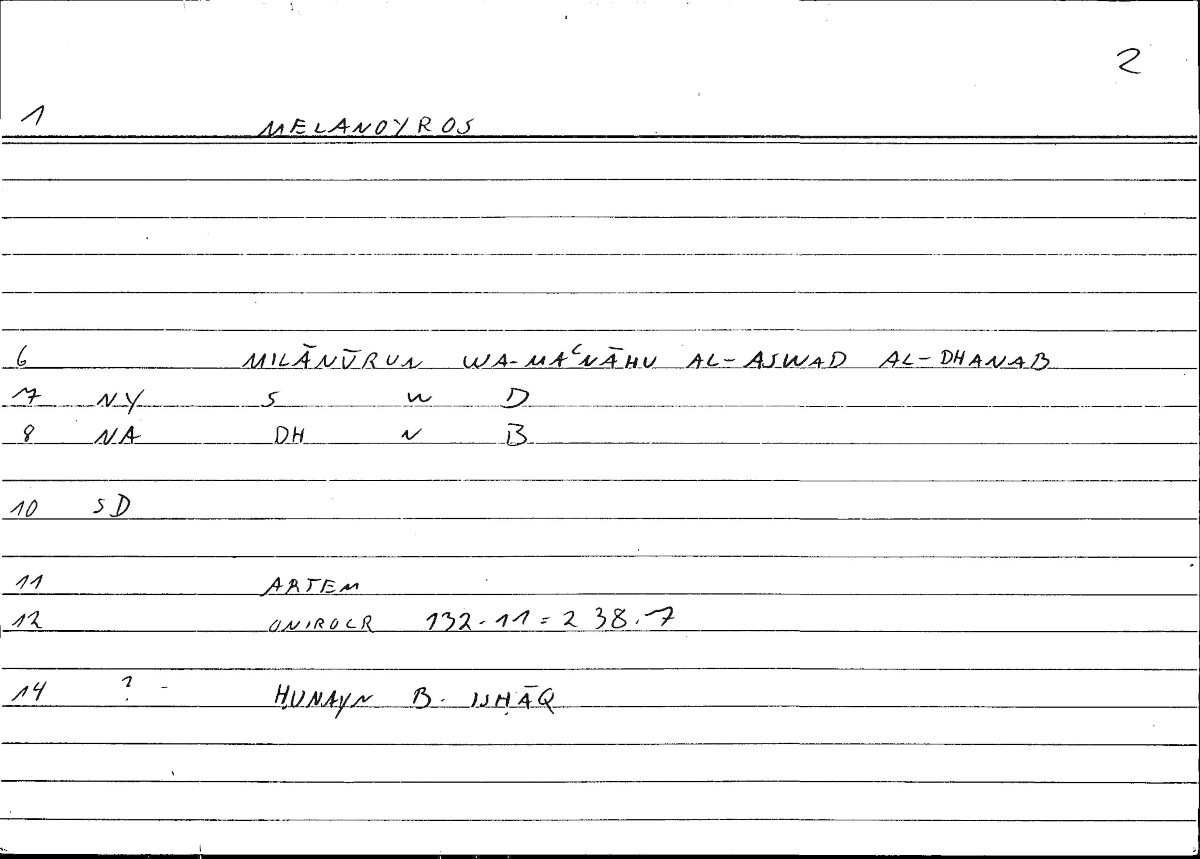 2
1 MELANOYROS
6 MILĀNŪRUN WA-MAᶜNĀHU AL-ASWAD AL-DHANAB
7 NY S W D
8 NA DH N B
10 SD
11 ARTEM
12 ONIROCR 132.11 = 238.7
14 ? - ḤUNAYN B. ISḤĀQ